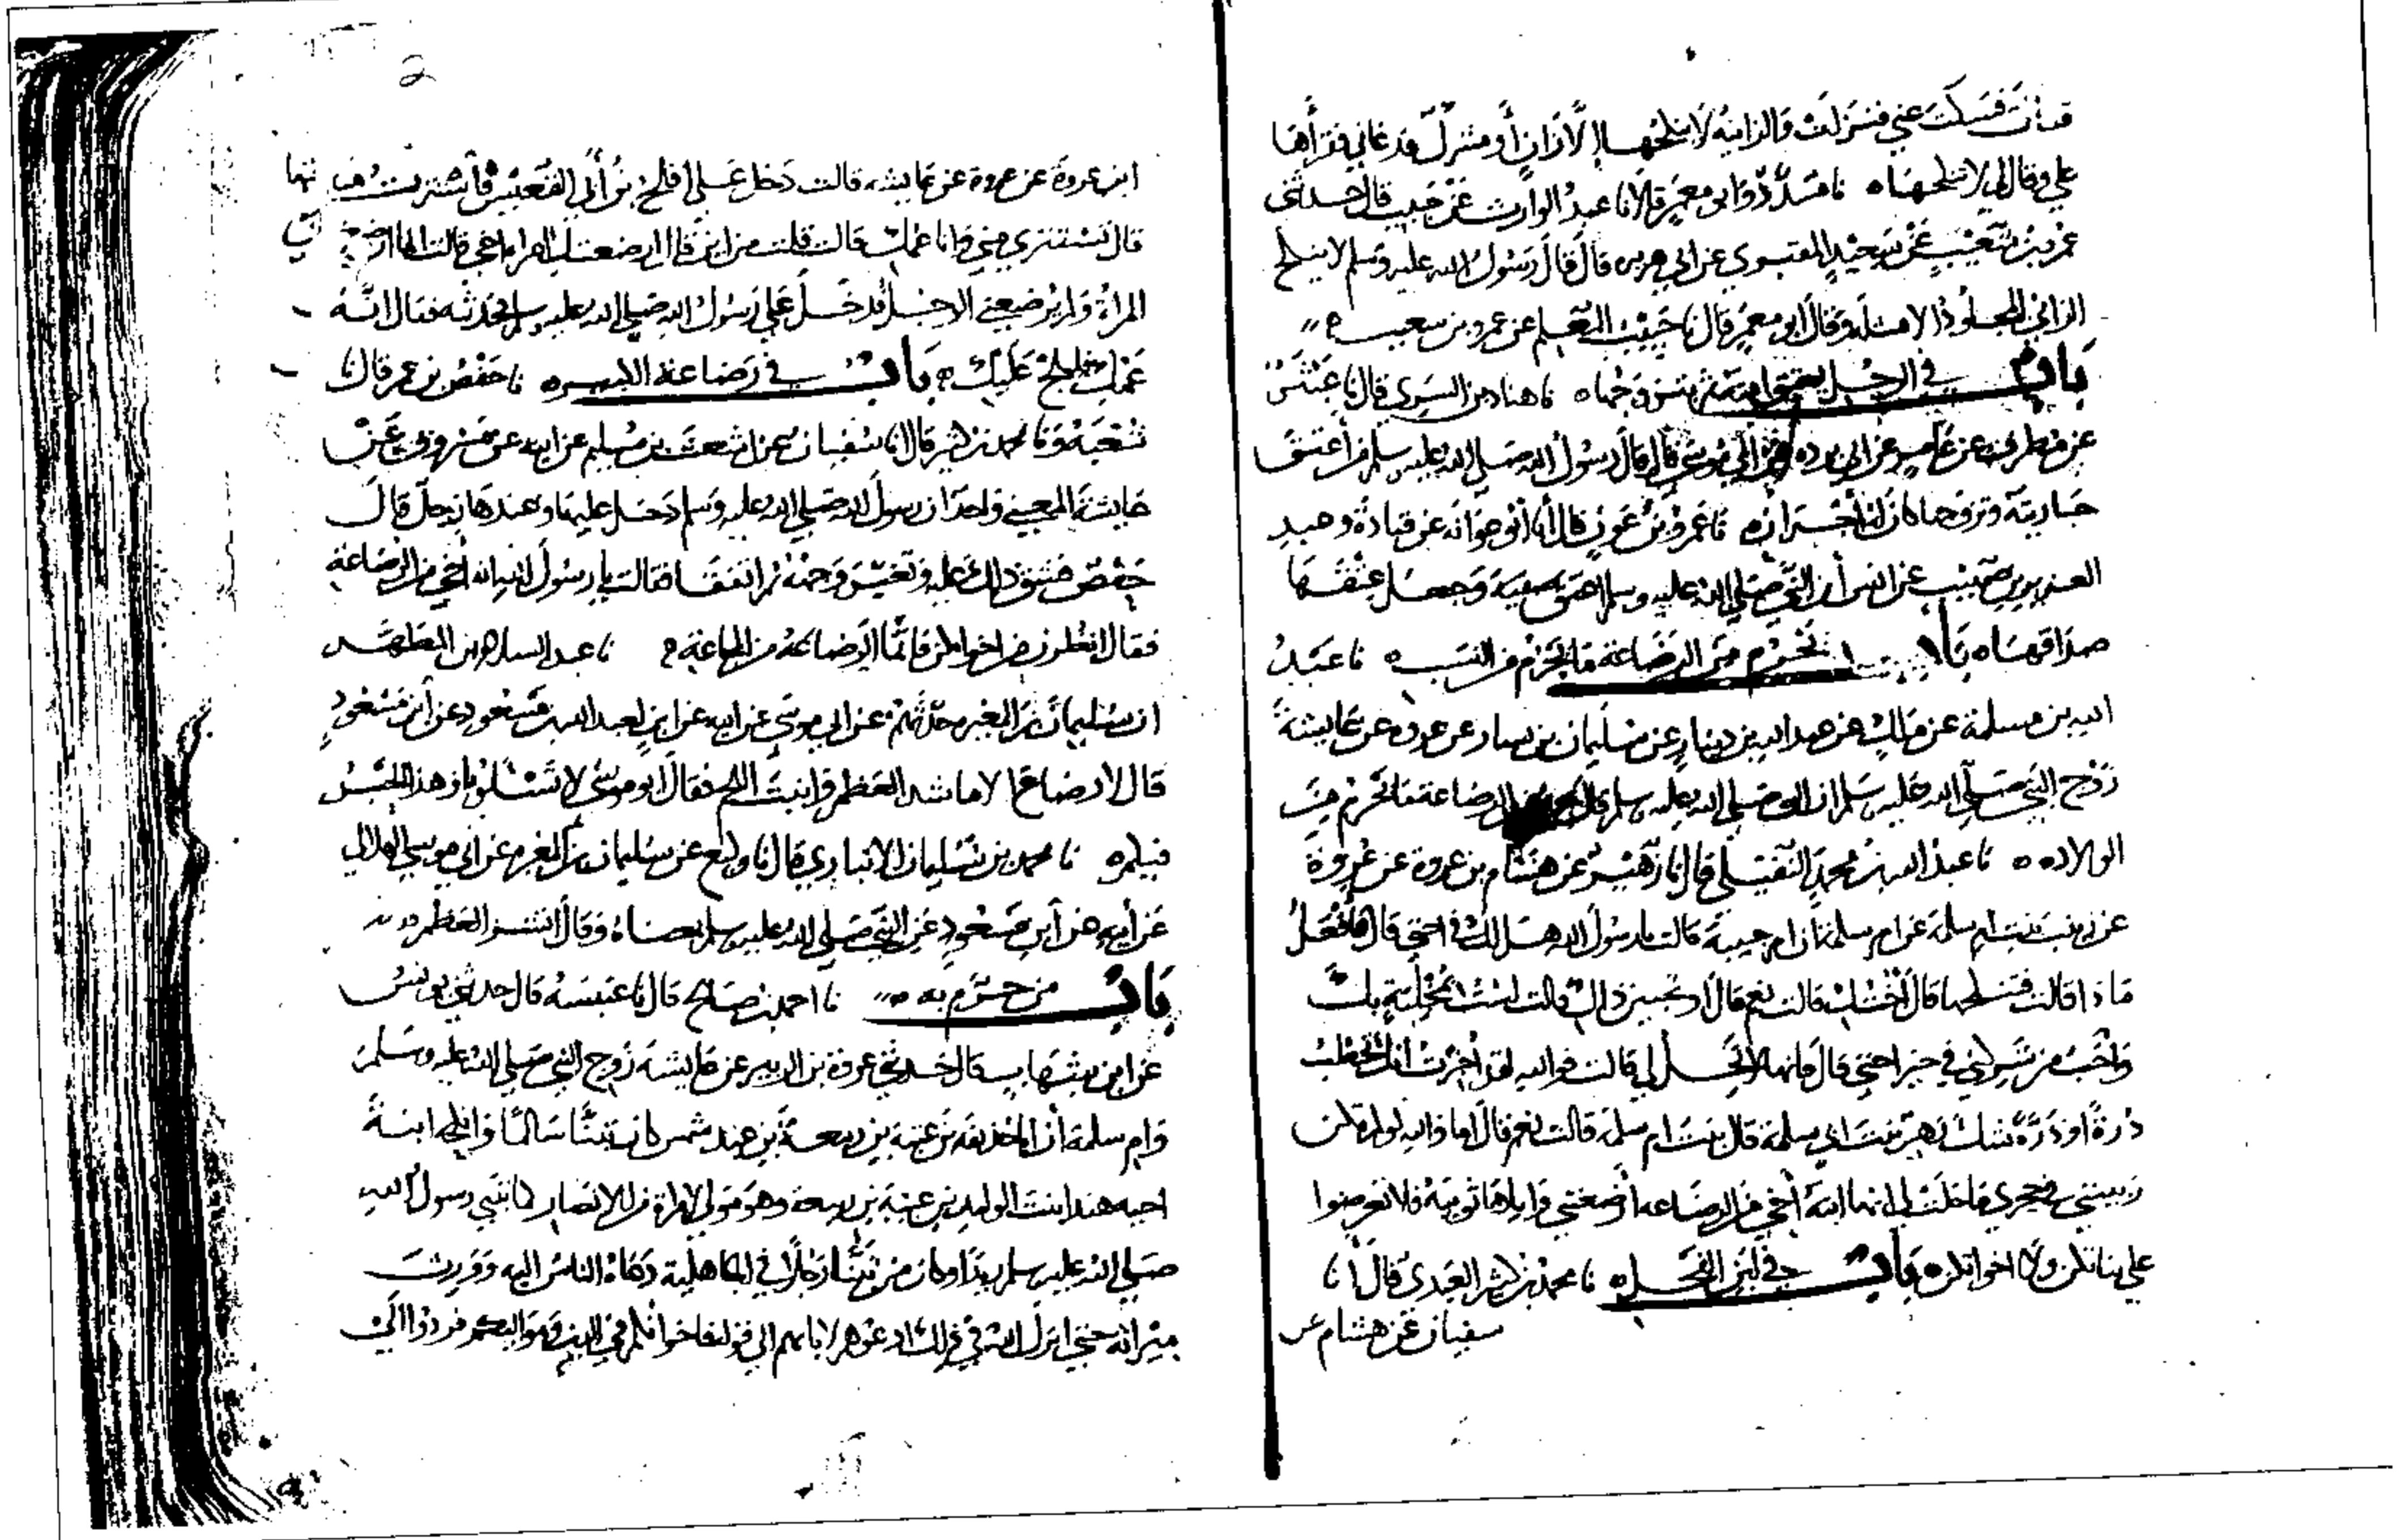 قد أنت فسكت عني فنزلت والزانية لا ينكحها إلا زان أو مشرك فدعاني فقرأها
علي وقال لي لا تنكحها ه نا مسدد وأبو معمر قالا نا عبد الوارث عن حبيب قال حدثني
عمرو بن شعيب عن سعيد المقبري عن أبي هريرة قال قال رسول الله صلى الله عليه وسلم لا ينكح
الزاني المجلود إلا مثله وقال أبو معمر قال نا حبيب المعلم عن عمرو بن شعيب ه
باب في الرجل يعتق أمته ثم يتزوجها ه نا هناد بن السري قال نا عبثر
عن مطرف عن عامر عن أبي بردة عن أبي موسى قال قال رسول الله صلى الله عليه وسلم من أعتق
جاريته وتزوجها كان له أجران ه نا عمرو بن عون قال أنا أبو عوانة عن قتادة وعبد
العزيز بن صهيب عن أنس أن النبي صلى الله عليه وسلم أعتق صفية وجعل عتقها
صداقها ه باب يحرم من الرضاعة ما يحرم من النسب ه نا عبد
الله بن مسلمة عن مالك عن عبد الله بن دينار عن سليمان بن يسار عن عروة عن عايشة
زوج النبي صلى الله عليه وسلم أن النبي صلى الله عليه وسلم قال يحرم من الرضاعة ما يحرم من
الولادة ه نا عبد الله بن محمد النفيلي قال نا زهير عن هشام بن عروة عن عروة
عن زينب بنت أم سلمة عن أم سلمة أن أم حبيبة قالت يا رسول الله هل لك في أختي قال فأفعل
ماذا قالت فتنكحها قال أختك قالت نعم قال أو تحبين ذاك قالت لست بمخلية بك
وأحب من شركني في خير أختي قال فإنها لا تحل لي قالت فوالله لقد أخبرت أنك تخطب
درة أو ذرة شك زهير بنت أبي سلمة قال بنت أم سلمة قالت نعم قال أما والله لو لم تكن
ربيبتي في حجري ما حلت لي إنها ابنة أخي من الرضاعة أرضعتني وأباها ثويبة فلا تعرضوا
علي بناتكن ولا أخواتكن ه باب في لبن الفحل ه نا محمد بن كثير العبدي قال أنا
سفيان عن هشام عن
ابن عروة عن عروة عن عايشة قالت دخل علي أفلح بن أبي القعيس فاستترت منه
قال تستترين مني وأنا عمك قالت قلت من أين قال أرضعتك امرأة أخي قالت إنما أرضعتني
المرأة ولم يرضعني الرجل فدخل علي رسول الله صلى الله عليه وسلم فحدثته فقال إنه
عمك فليلج عليك ه باب في رضاعة الكبير ه نا حفص بن عمر قال نا
شعبة ونا محمد بن كثير قال أنا سفيان عن أشعث بن سليم عن أبيه عن مسروق عن
عايشة المعنى واحد أن رسول الله صلى الله عليه وسلم دخل عليها وعندها رجل قال
حفص فشق ذلك عليه وتغير وجهه ثم اتفقا قالت يا رسول الله إنه أخي من الرضاعة
فقال انظرن من إخوانكن فإنما الرضاعة من المجاعة ه نا عبد السلام بن المطهر
أن سليمان بن المغيرة حدثهم عن أبي موسى عن أبيه عن ابن لعبد الله بن مسعود عن ابن مسعود
قال لا رضاع إلا ما شد العظم وأنبت اللحم فقال أبو موسى لا تسألونا وهذا الحبر
فيكم ه نا محمد بن سليمان الأنباري قال نا وكيع عن سليمان بن المغيرة عن أبي موسى الهلالي
عن أبيه عن ابن مسعود عن النبي صلى الله عليه وسلم بمعناه وقال أنشز العظم ه
باب من حرم به ه نا أحمد بن صالح قال نا عنبسة قال حدثني يونس
عن ابن شهاب قال حدثني عروة بن الزبير عن عايشة زوج النبي صلى الله عليه وسلم
وأم سلمة أن أبا حذيفة بن عتبة بن ربيعة بن عبد شمس كان تبنى سالما وأنكحه ابنة
أخيه هند ابنت الوليد بن عتبة بن ربيعة وهو مولى لامرأة من الأنصار كما تبنى رسول الله
صلى الله عليه وسلم زيدا وكان من تبنى رجلا في الجاهلية دعاه الناس إليه وورث
ميراثه حتى أنزل الله في ذلك ادعوهم لآبائهم إلى قوله فإخوانكم في الدين ومواليكم فردوا إلى